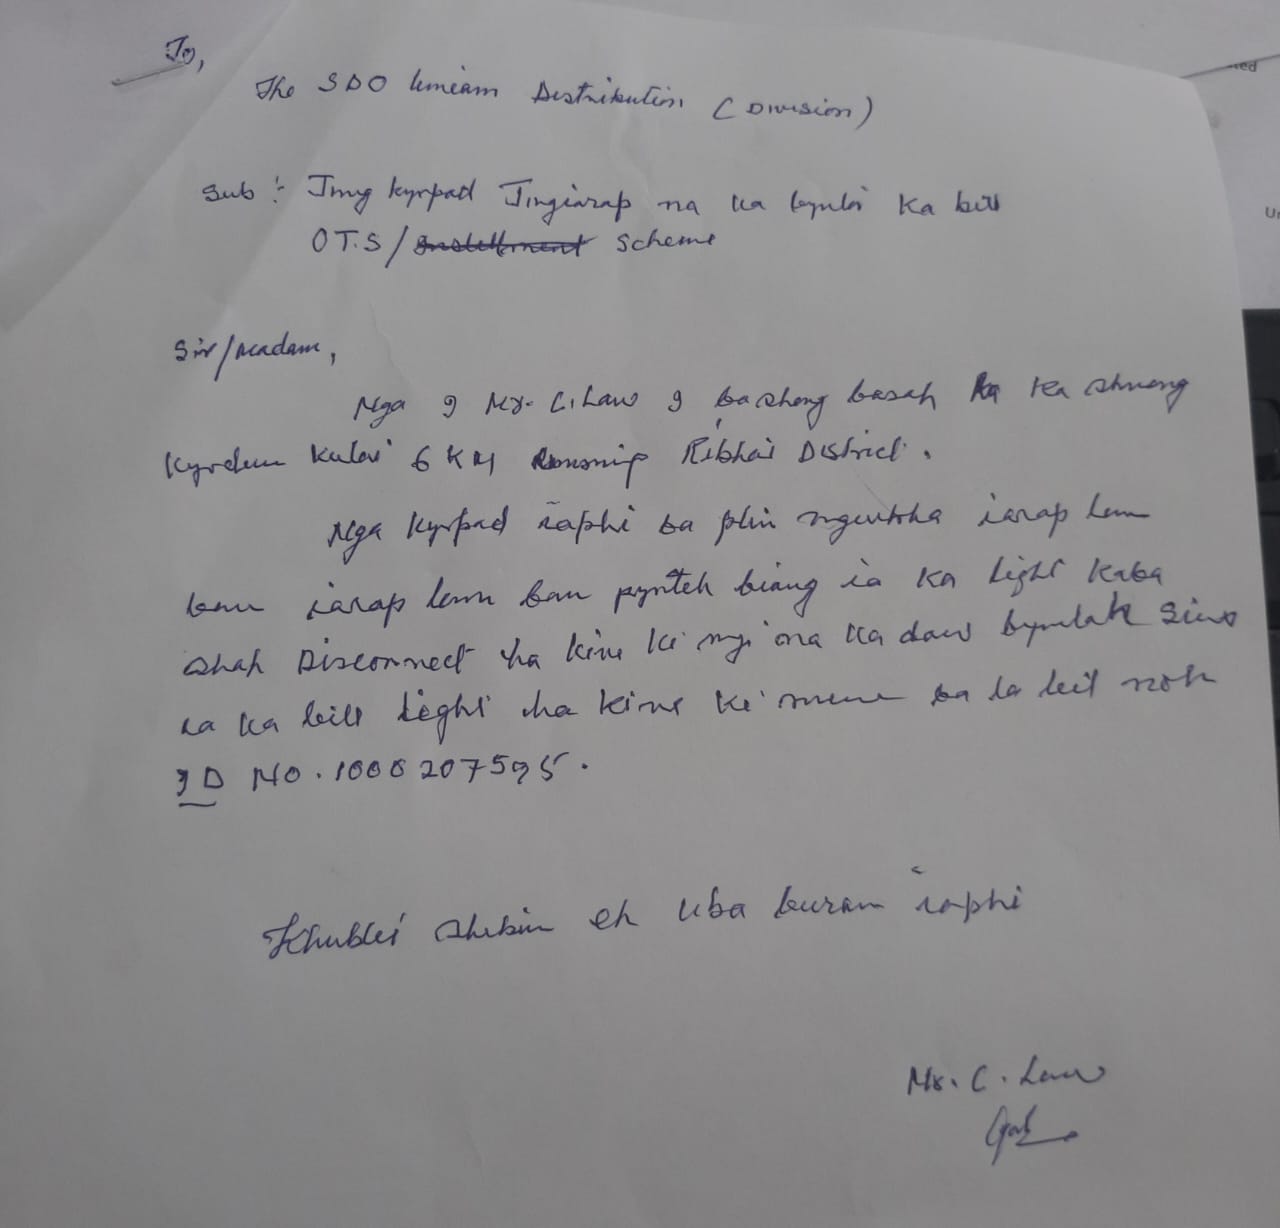 To,
The SDO Umiam Distribution (Division)
Sub :- Jing kyrpad Jingiarap na ka bynta ka bill
O.T.S / Scheme
Sir/Madam,
Nga I Mr. C. Law I ba shong basah ha ka shnong
Kyrdem Kulai 6 KM Ribhoi District.
Nga kyrpad ïaphi ba phin iarap lem
ban iarap lem ban pynteh biang ia ka light kaba
shah Disconnect ha kine ki na ka daw bymlah siew
ia ka bill Light ha kine ki ba la leit noh
ID NO. 1000207595.
Khublei shibun eh Uba burom ïaphi
Mr. C. Law
ed